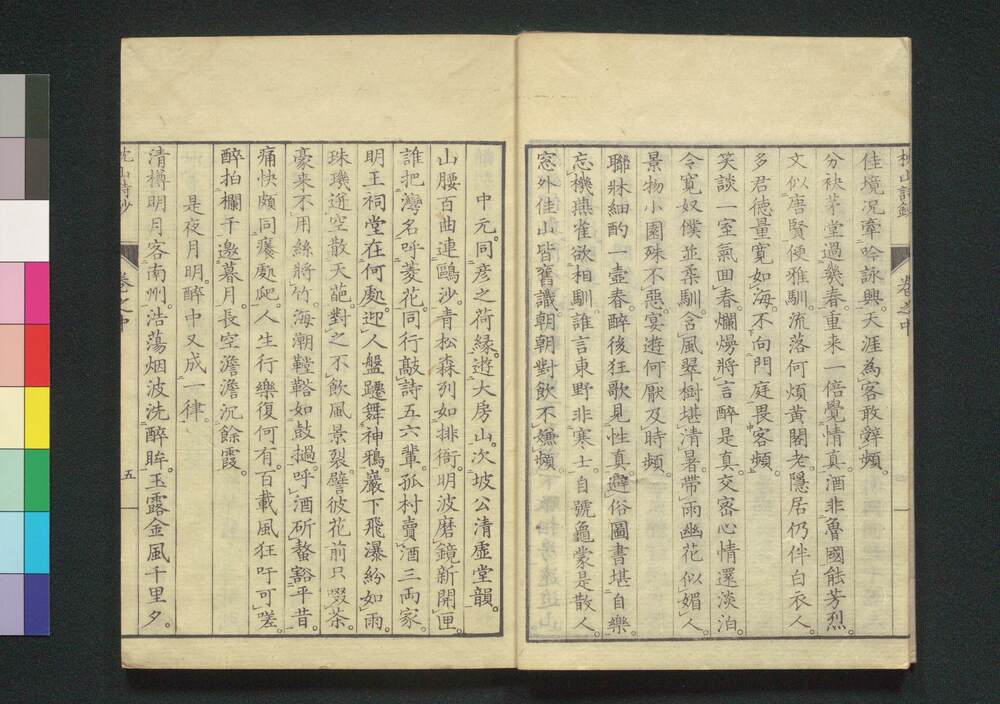 佳境况牽吟詠興。天涯爲客敢辭頻。
分袂茅堂過幾春。重来一倍覺情真。酒非魯國能芳烈。
文似唐賢便雅馴。流落何煩黄閣老。隱居仍伴白衣人。
多君徳量寛如海。不向門庭畏客頻。
笑談一室氣回春。爛熳將言醉是真。交密心情還淡泊。
令寛奴僕並柔馴。含風翠樹堪清暑。帶雨幽花似媚人。
景物小園殊不惡。宴遊何厭及時頻。
聯牀細酌一壺春。醉後狂歌見性真。避俗圖書堪自樂。
忘機燕雀欲相馴。誰言東野非寒士。自號龜蒙是散人。
窓外佳山皆舊識。朝朝對飲不嫌頻。
卷之中
中元。同彦之荷縁。遊大房山。次坡公清虚堂韻。
山腰百曲連鷗沙。青松森列如排衙。明波磨鏡新開匣。
誰把灣名呼菱花。同行敲詩五六輩。孤村賣酒三両家。
明王祠堂在何處。迎人盤躚舞神鴉。巖下飛瀑紛如雨。
珠璣迸空散天葩。對之不飲風景裂。譬彼花前只啜茶。
豪来不用絲將竹。海潮鞺鞳如鼓撾。呼酒斫螯豁平昔。
痛快頗同癢處爬。人生行樂復何有。百載風狂吁可嗟。
醉拍欄干邀暮月。長空澹澹沉餘霞。
是夜月明。醉中又成一律。
清樽明月客南州。浩蕩烟波洗醉眸。玉露金風千里夕。
卷之中
五